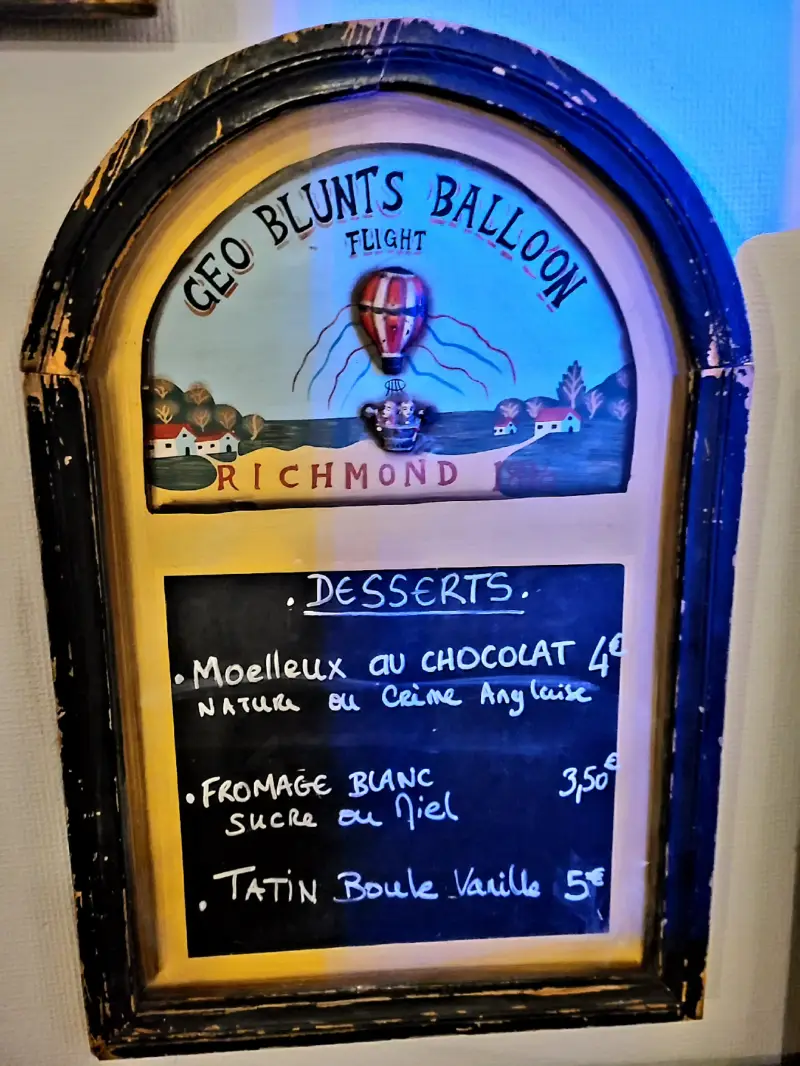 GEO BLUNTS BALLOON
FLIGHT
RICHMOND
. DESSERTS.
. Moelleux au CHOCOLAT 4€
NATURE ou Crème Anglaise
. FROMAGE BLANC 3,50€
SUCRE ou Miel
. TATIN Boule Vanille 5€